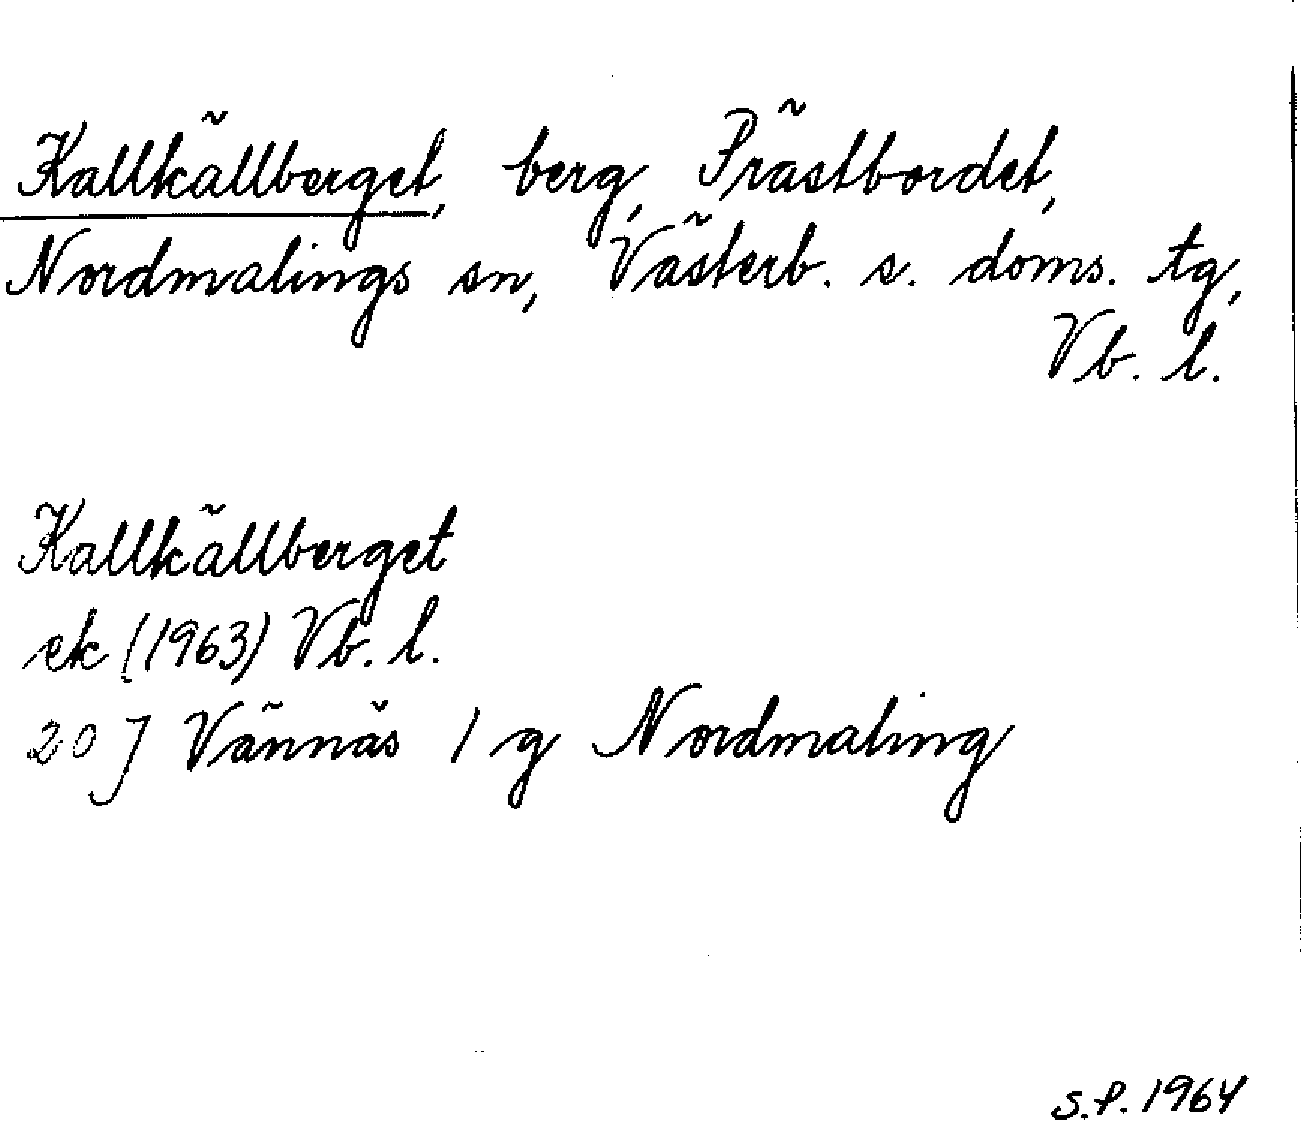 Kallkällberget, berg, Prästbordet,
Nordmalings sn, Västerb. s. doms. tg,
Vb. l.
Kallkällberget
ek (1963) Vb. l.
20 J Vännäs 1 g Nordmaling
S.P. 1964